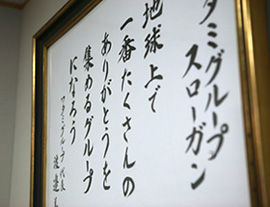 タミグループ
スローガン
地球上で
一番たくさんの
ありがとうを
集めるグループ
になろう
ワタミグループ代表
渡邉